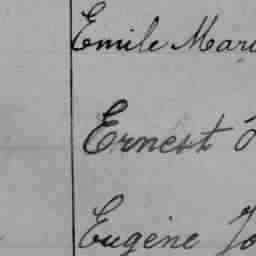 Emile Mari
Ernest
Eugène Jo